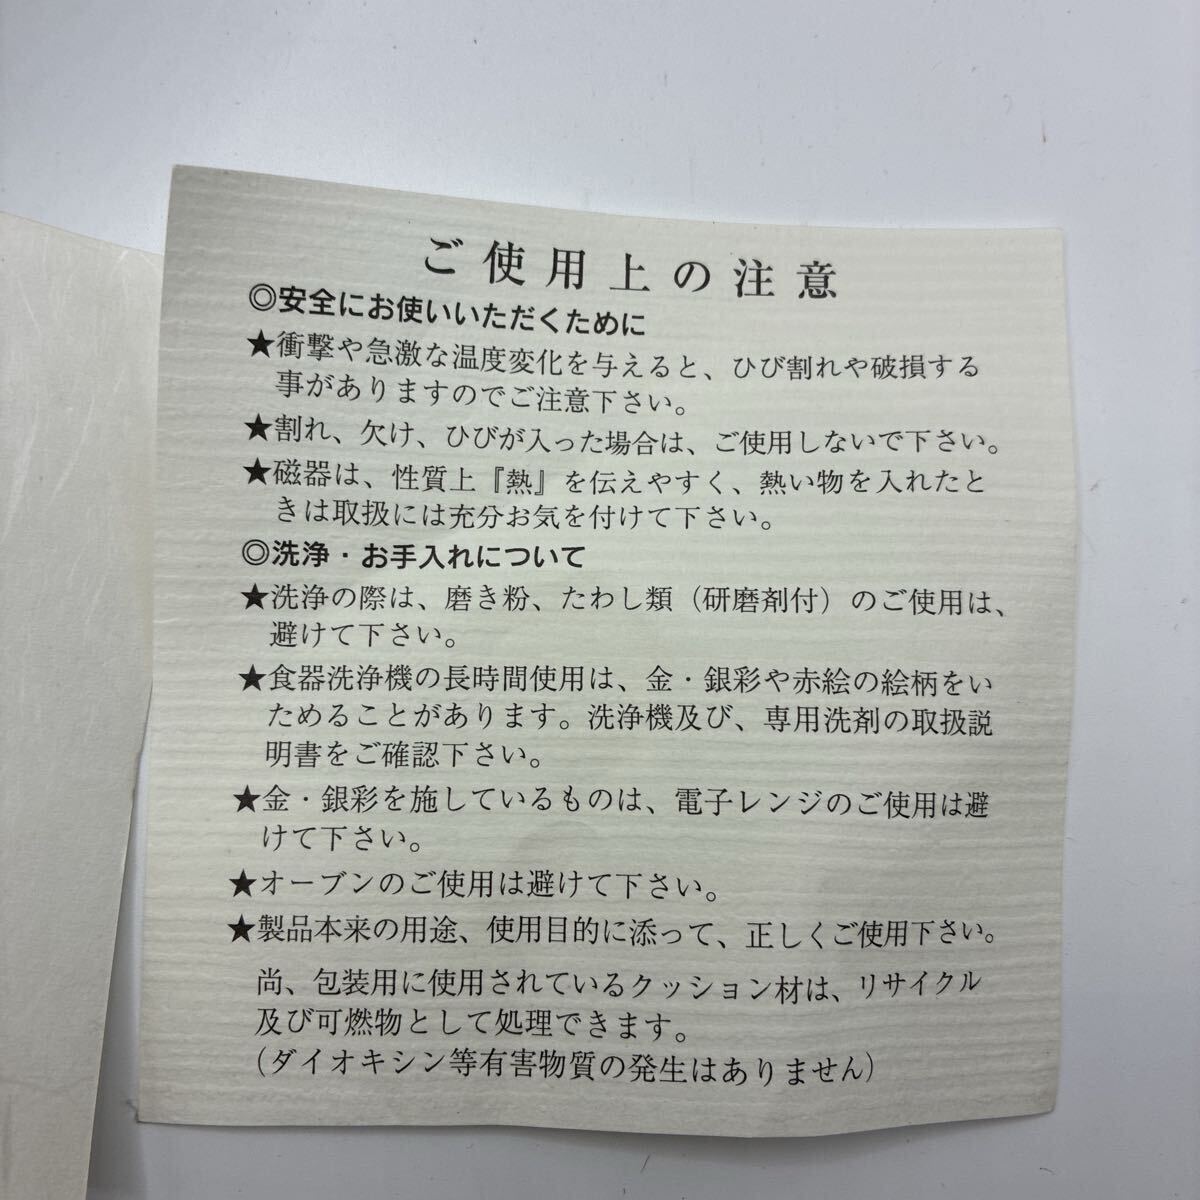 ご使用上の注意
◎安全にお使いいただくために
★衝撃や急激な温度変化を与えると、ひび割れや破損する
事がありますのでご注意下さい。
★割れ、欠け、ひびが入った場合は、ご使用しないで下さい。
★磁器は、性質上『熱』を伝えやすく、熱い物を入れたと
きは取扱には充分お気を付けて下さい。
◎洗浄・お手入れについて
★洗浄の際は、磨き粉、たわし類（研磨剤付）のご使用は、
避けて下さい。
★食器洗浄機の長時間使用は、金・銀彩や赤絵の絵柄をい
ためることがあります。洗浄機及び、専用洗剤の取扱説
明書をご確認下さい。
★金・銀彩を施しているものは、電子レンジのご使用は避
けて下さい。
★オーブンのご使用は避けて下さい。
★製品本来の用途、使用目的に添って、正しくご使用下さい。
尚、包装用に使用されているクッション材は、リサイクル
及び可燃物として処理できます。
(ダイオキシン等有害物質の発生はありません)